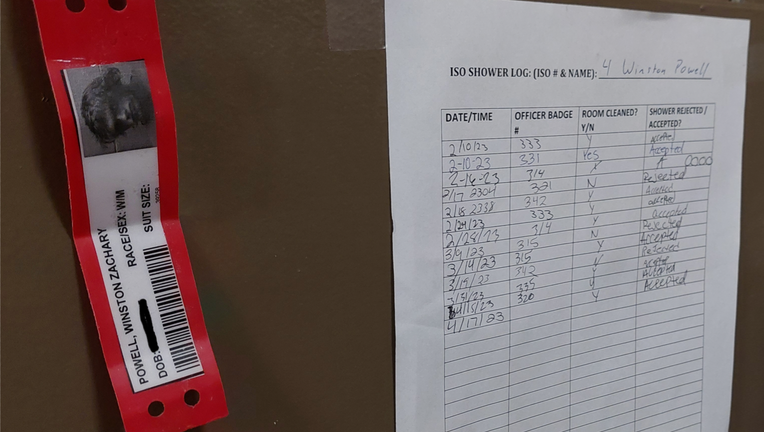 POWELL, WINSTON ZACHARY
RACE/SEX: W/M
DOB:
SUIT SIZE:
ISO SHOWER LOG: (ISO # & NAME): 4 Winston Powell
DATE/TIME OFFICER BADGE # ROOM CLEANED? Y/N SHOWER REJECTED / ACCEPTED?
2/10/23 333 Y accepted
2-10-23 331 Yes Accepted
2-16-23 314 Y A
2/17 2304 321 N Rejected
2/18 2338 342 Y Accepted
2/24/23 333 Y accepted
2/28/23 314 Y accepted
3/9/23 315 N Rejected
3/14/23 315 Y Accepted
3/19/23 342 Y Refused
3/31/23 335 Y accepted
4/15/23 320 Y Accepted
4/17/23 Accepted